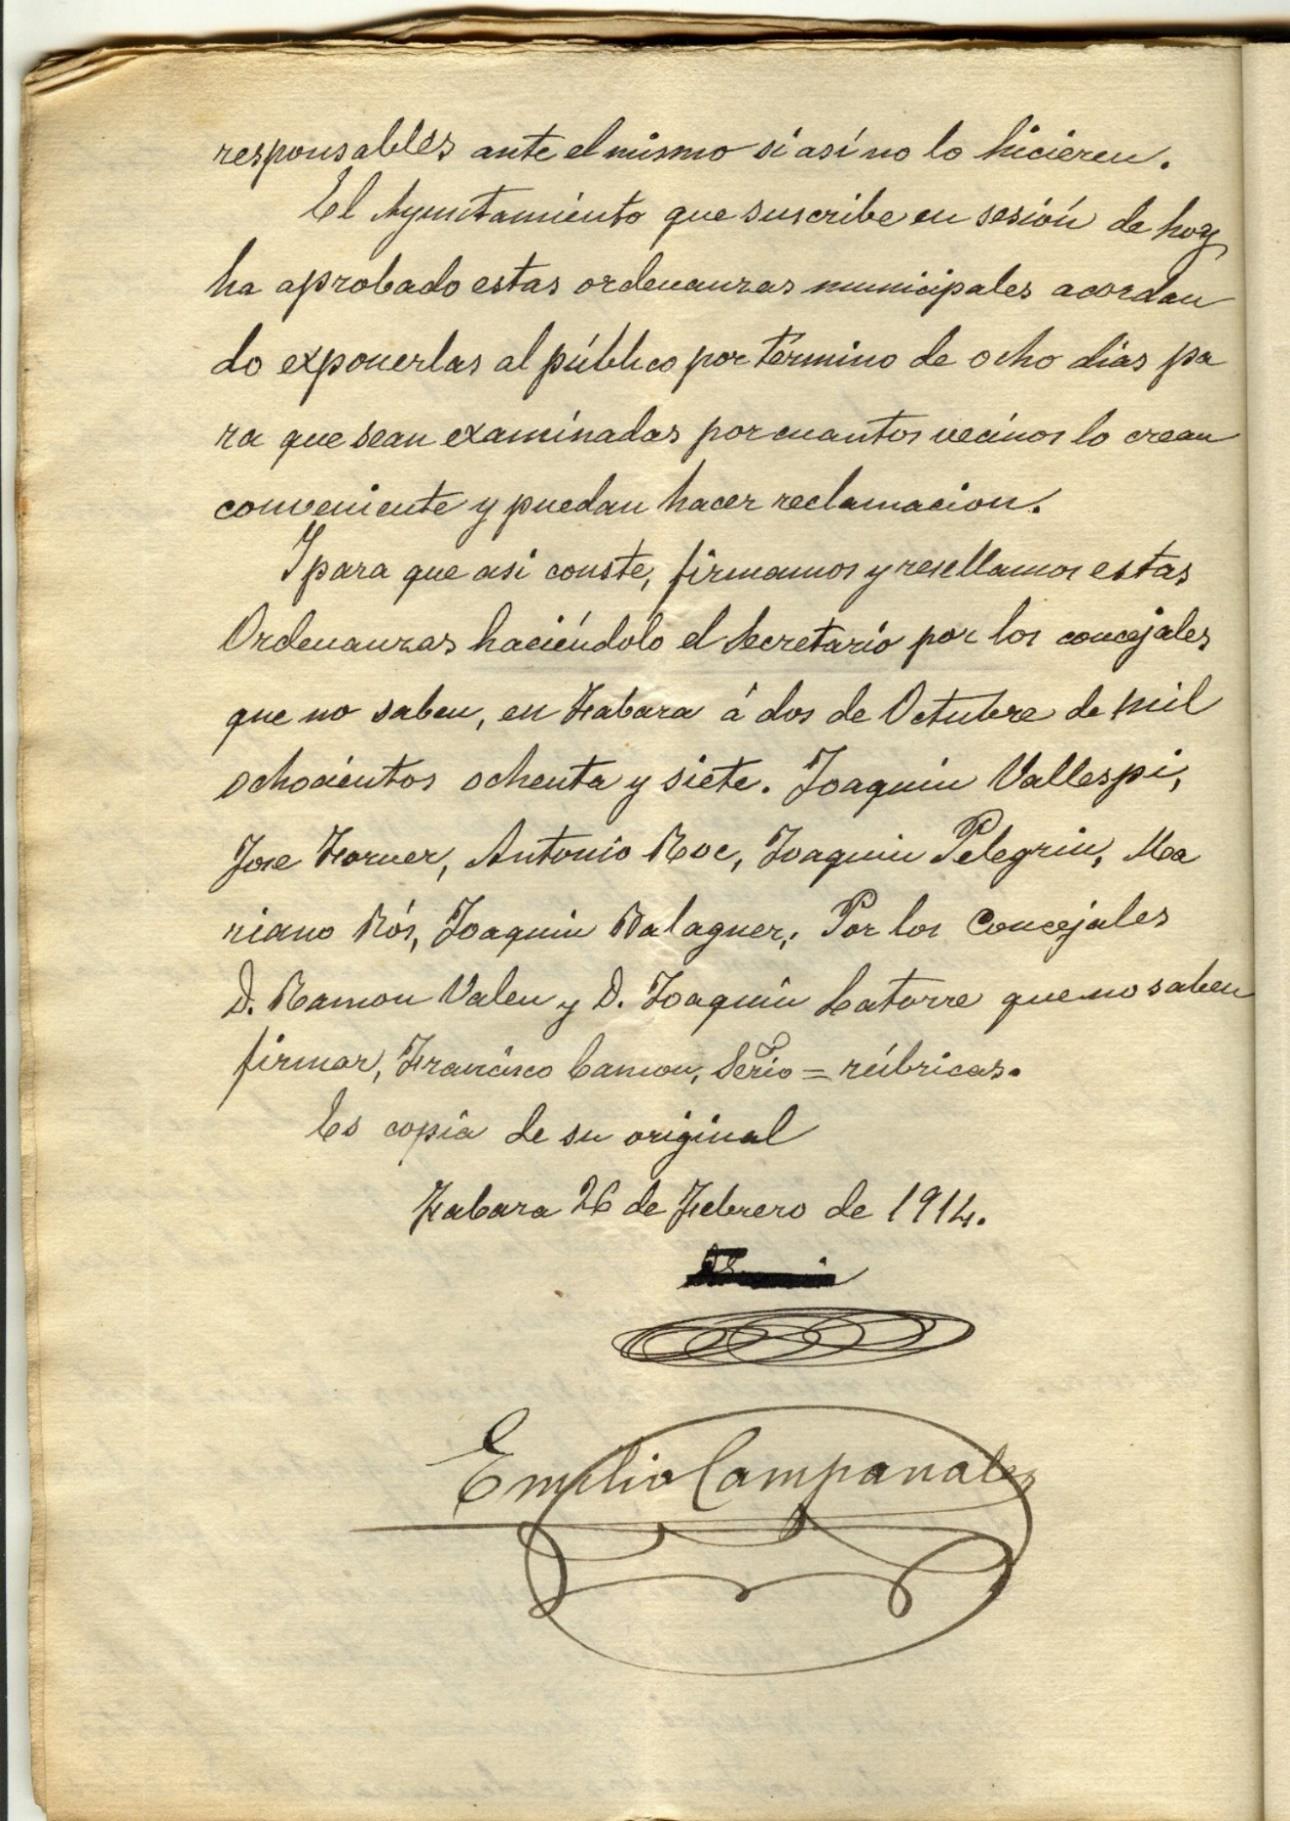 responsables ante el mismo si así no lo hicieren.
El Ayuntamiento que suscribe en sesión de hoy
ha aprobado estas ordenanzas municipales acordan
do exponerlas al público por término de ocho dias pa
ra que sean examinadas por cuantos vecinos lo crean
conveniente y puedan hacer reclamacion.
Y para que asi conste, firmamos y resellamos estas
Ordenanzas haciéndolo el Secretario por los concejales
que no saben, en Fabara á dos de Octubre de mil
ochocientos ochenta y siete. Joaquin Vallespi,
Jose Forner, Antonio Roc, Joaquin Pelegrin, Ma
riano Rós, Joaquin Balaguer, Por los Concejales
D. Ramon Valen y D. Joaquin Latorre que no saben
firmar, Francisco Camon, Serio = rúbricas.
Es copia de su original
Fabara 26 de Febrero de 1914.
Emilio Campanales